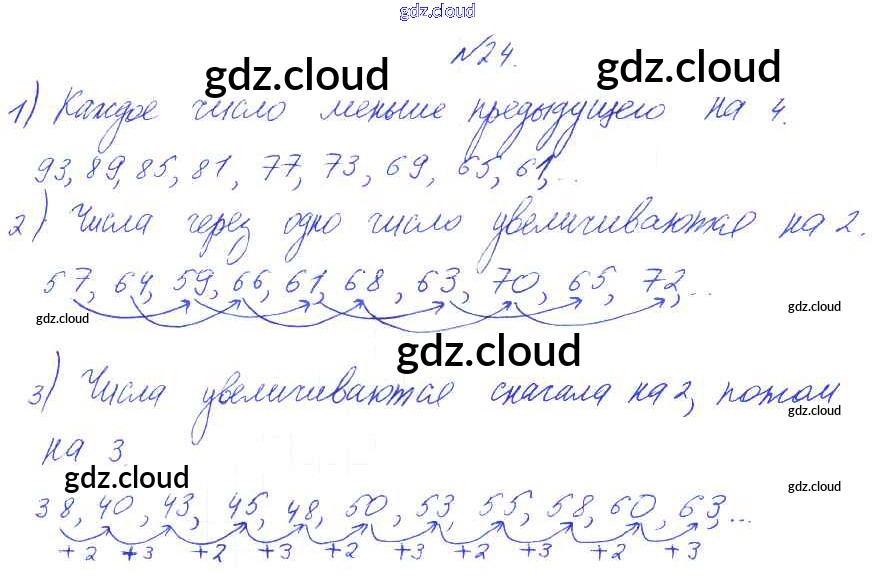 gdz.cloud
№24.
gdz.cloud gdz.cloud
1) Каждое число меньше предыдущего на 4.
93, 89, 85, 81, 77, 73, 69, 65, 61, ...
2) Числа через одно число увеличиваются на 2.
57, 64, 59, 66, 61, 68, 63, 70, 65, 72, ...
gdz.cloud gdz.cloud
gdz.cloud
3) Числа увеличиваются сначала на 2, потом
gdz.cloud
на 3.
gdz.cloud gdz.cloud
38, 40, 43, 45, 48, 50, 53, 55, 58, 60, 63, ...
+2 +3 +2 +3 +2 +3 +2 +3 +2 +3